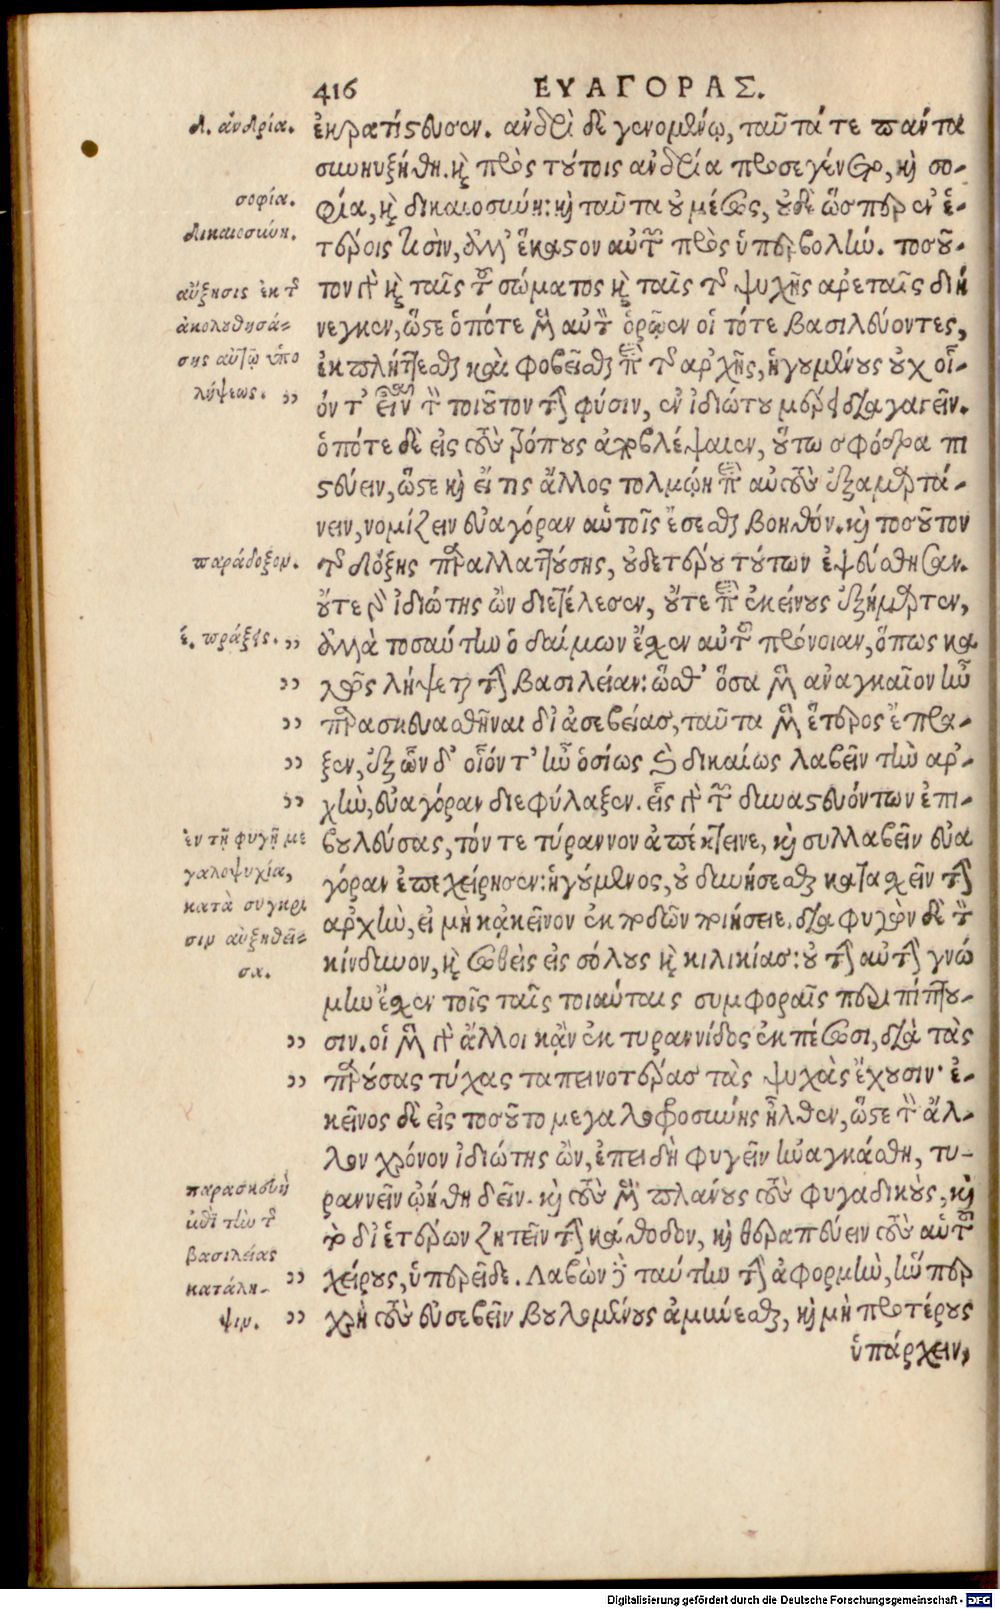 416 ΕΥΑΓΟΡΑΣ.
δ. ἀνδρία.
ἐκρατίστευσεν. ἀνδρὶ δὲ γενομένῳ, ταῦτά τε πάντα
συνηυξήθη. καὶ πρὸς τούτοις ἀνδρία προσεγένετο, καὶ σο-
σοφία.
φία, καὶ δικαιοσύνη: καὶ ταῦτα οὐ μέσως, οὐδὲ ὥσπερ ἐν ἑ-
δικαιοσύνη.
τέροις τισὶν, ἀλλ' ἕκαστον αὐτῶν πρὸς ὑπερβολήν. τοσοῦ-
αὔξησις ἐκ τῆς
τον γὰρ καὶ ταῖς τοῦ σώματος καὶ ταῖς τῆς ψυχῆς ἀρεταῖς διή
ἀκολουθησά-
νεγκεν, ὥστε ὁπότε μὲν αὐτὸν ὁρῷεν οἱ τότε βασιλεύοντες,
σης αὐτῷ ὑπο
ἐκπλήττεσθαι καὶ φοβεῖσθαι περὶ τῆς ἀρχῆς, ἡγουμένους οὐχ οἷ-
λήψεως. ,,
όν τ' εἶναι τὸν τοιοῦτον τὴν φύσιν, ἐν ἰδιώτου μέρει διαγαγεῖν.
ὁπότε δὲ εἰς τοὺς τρόπους ἀποβλέψαιεν, οὕτω σφόδρα πι
στεύειν, ὥστε καὶ εἴ τις ἄλλος τολμῴη περὶ αὐτοὺς ἐξαμαρτά-
νειν, νομίζειν εὐαγόραν αὑτοῖς ἔσεσθαι βοηθόν. καὶ τοσοῦτον
παράδοξον.
τῆς δόξης παραλλαττούσης, οὐδετέρου τούτων ἐψεύσθησαν.
οὔτε γὰρ ἰδιώτης ὢν διετέλεσεν, οὔτε περὶ ἐκείνους ἐξήμαρτεν,
ἑ. πράξεις. ,,
ἀλλὰ τοσαύτην ὁ δαίμων ἔσχεν αὐτοῦ πρόνοιαν, ὅπως κα
,,
λῶς λήψεται τὴν βασιλείαν: ὥσθ' ὅσα μὲν ἀναγκαῖον ἦν
,,
παρασκευασθῆναι δι' ἀσεβείας, ταῦτα μὲν ἕτερος ἔπρα-
,,
ξεν, ἐξ ὧν δ' οἷόν τ' ἦν ὁσίως καὶ δικαίως λαβεῖν τὴν ἀρ-
,,
χὴν, εὐαγόραν διεφύλαξεν. εἷς γὰρ τῶν δυναστευόντων ἐπι-
ἐν τῇ φυγῇ με
βουλεύσας, τόν τε τύραννον ἀπέκτεινε, καὶ συλλαβεῖν εὐα
γαλοψυχία,
γόραν ἐπεχείρησεν: ἡγούμενος, οὐ δυνήσεσθαι κατασχεῖν τὴν
κατὰ συγκρι
ἀρχὴν, εἰ μὴ κἀκεῖνον ἐκποδὼν ποιήσειε. διαφυγὼν δὲ τὸν
σιν αὐξηθεῖ-
κίνδυνον, καὶ σωθεὶς εἰς σόλους καὶ κιλικίας: οὐ τὴν αὐτὴν γνώ
σα.
μην ἔσχεν τοῖς ταῖς τοιαύταις συμφοραῖς περιπίπτου-
,,
σιν. οἱ μὲν γὰρ ἄλλοι κἂν ἐκ τυραννίδος ἐκπέσωσι, διὰ τὰς
,,
παρούσας τύχας ταπεινοτέρας τὰς ψυχὰς ἔχουσιν· ἐ-
κεῖνος δὲ εἰς τοσοῦτο μεγαλοφροσύνης ἦλθεν, ὥστε τὸν ἄλ-
λον χρόνον ἰδιώτης ὢν, ἐπειδὴ φυγεῖν ἠναγκάσθη, τυ-
παρασκευὴ
ραννεῖν ᾠήθη δεῖν. καὶ τοὺς μὲν πλάνους τοὺς φυγαδικοὺς, καὶ
μετὰ τὴν τῆς
τὸ δι' ἑτέρων ζητεῖν τὴν κάθοδον, καὶ θεραπεύειν τοὺς αὑτοῦ
βασιλείας
κατάλη- ,,
χείρους, ὑπερεῖδε. Λαβὼν δὲ ταύτην τὴν ἀφορμὴν, ἥνπερ
ψιν. ,,
χρὴ τοὺς εὐσεβεῖν βουλομένους ἀμύνεσθαι, καὶ μὴ προτέρους
ὑπάρχειν,
Digitalisierung gefördert durch die Deutsche Forschungsgemeinschaft - DFG